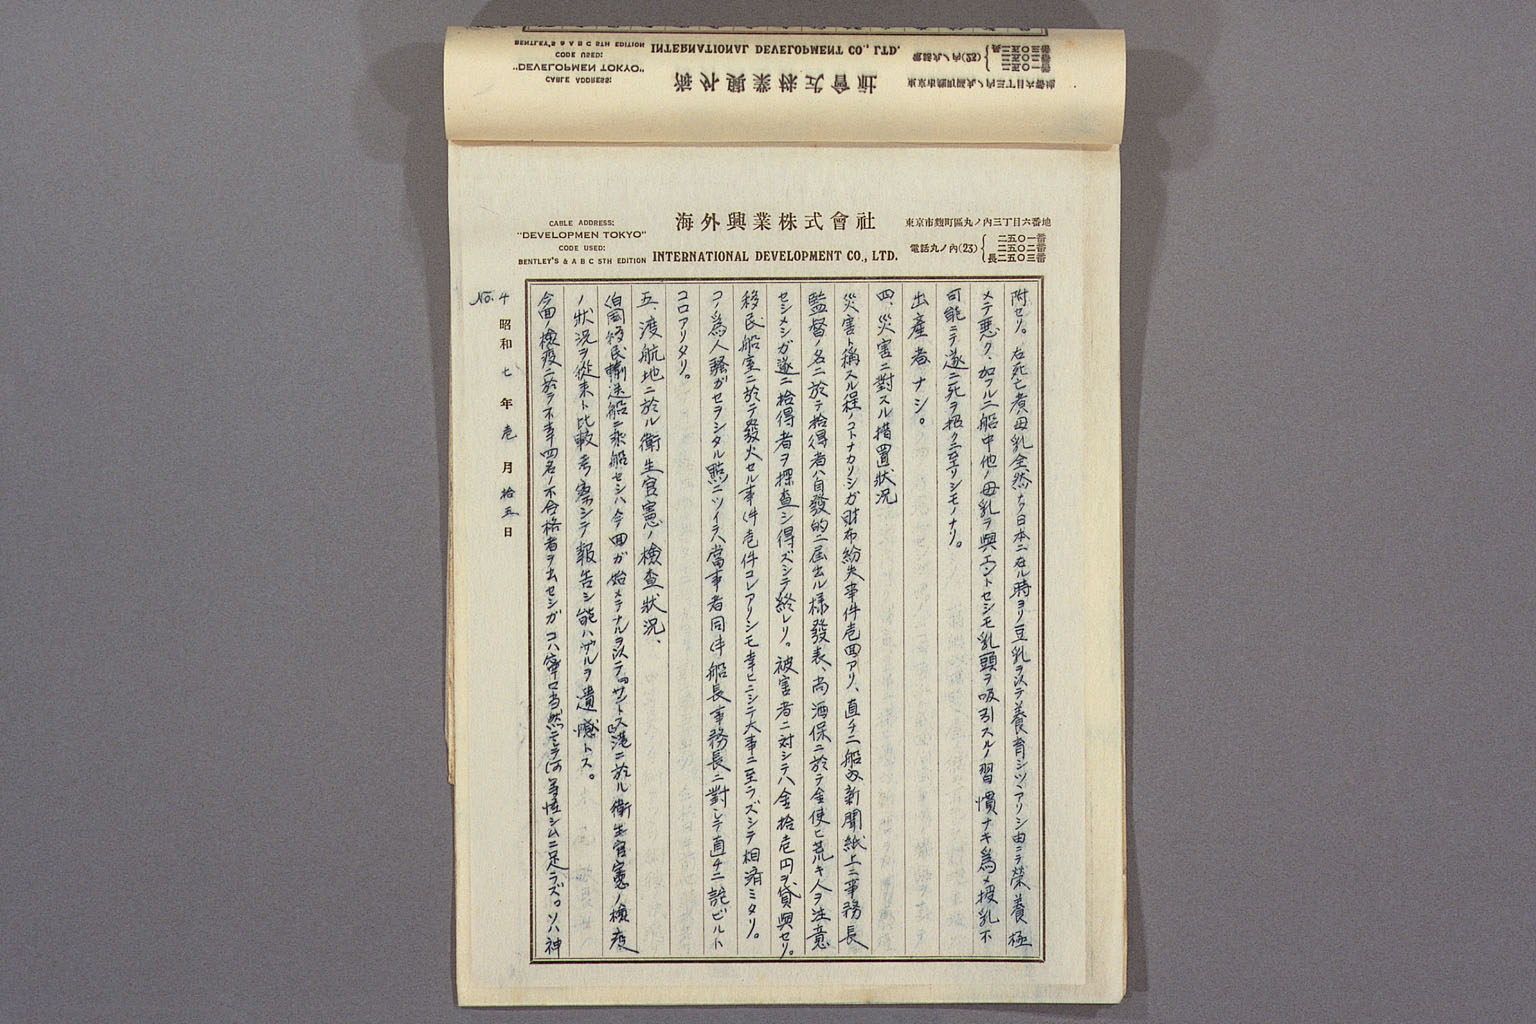 CABLE ADDRESS:
"DEVELOPMEN TOKYO"
CODE USED:
BENTLEY'S & A B C 5TH EDITION
INTERNATIONAL DEVELOPMENT CO., LTD.
CABLE ADDRESS:
"DEVELOPMEN TOKYO"
CODE USED:
BENTLEY'S & A B C 5TH EDITION
海外興業株式會社
INTERNATIONAL DEVELOPMENT CO., LTD.
東京市麴町區丸ノ內三丁目六番地
電話丸ノ內(23)
二五〇一番
二五〇二番
長二五〇三番
附セリ。右死亡者母乳全然ナク日本ニ在ル時ヨリ豆乳ヲ以テ養育シツヽアリシ由ニテ榮養極
メテ悪ク、加フルニ船中他ノ母乳ヲ與エントセシモ乳頭ヲ吸引スルノ習慣ナキ爲メ授乳不
可能ニテ遂ニ死ヲ招クニ至リシモノナリ。
出產者ナシ。
四、災害ニ對スル措置狀况
災害ト稱スル程ノコトナカリシガ財布紛失事件壱回アリ、直チニ船內新聞紙上ニ事務長
監督ノ名ニ於テ拾得者ハ自發的ニ届出ル樣發表、尚酒保ニ於テ金使ヒ荒キ人ヲ注意
セシメシガ遂ニ拾得者ヲ探查シ得ズシテ終レリ。被害者ニ対シテハ金拾壱円ヲ貸與セリ。
移民船室ニ於テ發火セル事件壱件コレアリシモ幸ヒニシテ大事ニ至ラズシテ相濟ミタリ。
コノ爲人騷ガセヲシタル點ニツイテハ當事者同伴船長事務長ニ對シテ直チニ詫ビルト
コロアリタリ。
五、渡航地ニ於ル衛生官憲ノ檢查狀況、
伯國移民輸送船ニ乘船セシハ今回ガ始メテナルヲ以テ『サントス』港ニ於ル衛生官憲ノ檢疫
ノ狀況ヲ從來ト比較考察シテ報告シ能ハザルヲ遺憾トス。
今回ノ檢疫ニ於テ不幸四名ノ不合格者ヲ出セシガコハ寧ロ当然ニシテ何等怪シムニ足ラズ。ソハ神
No. 4
昭和七年壱月拾五日